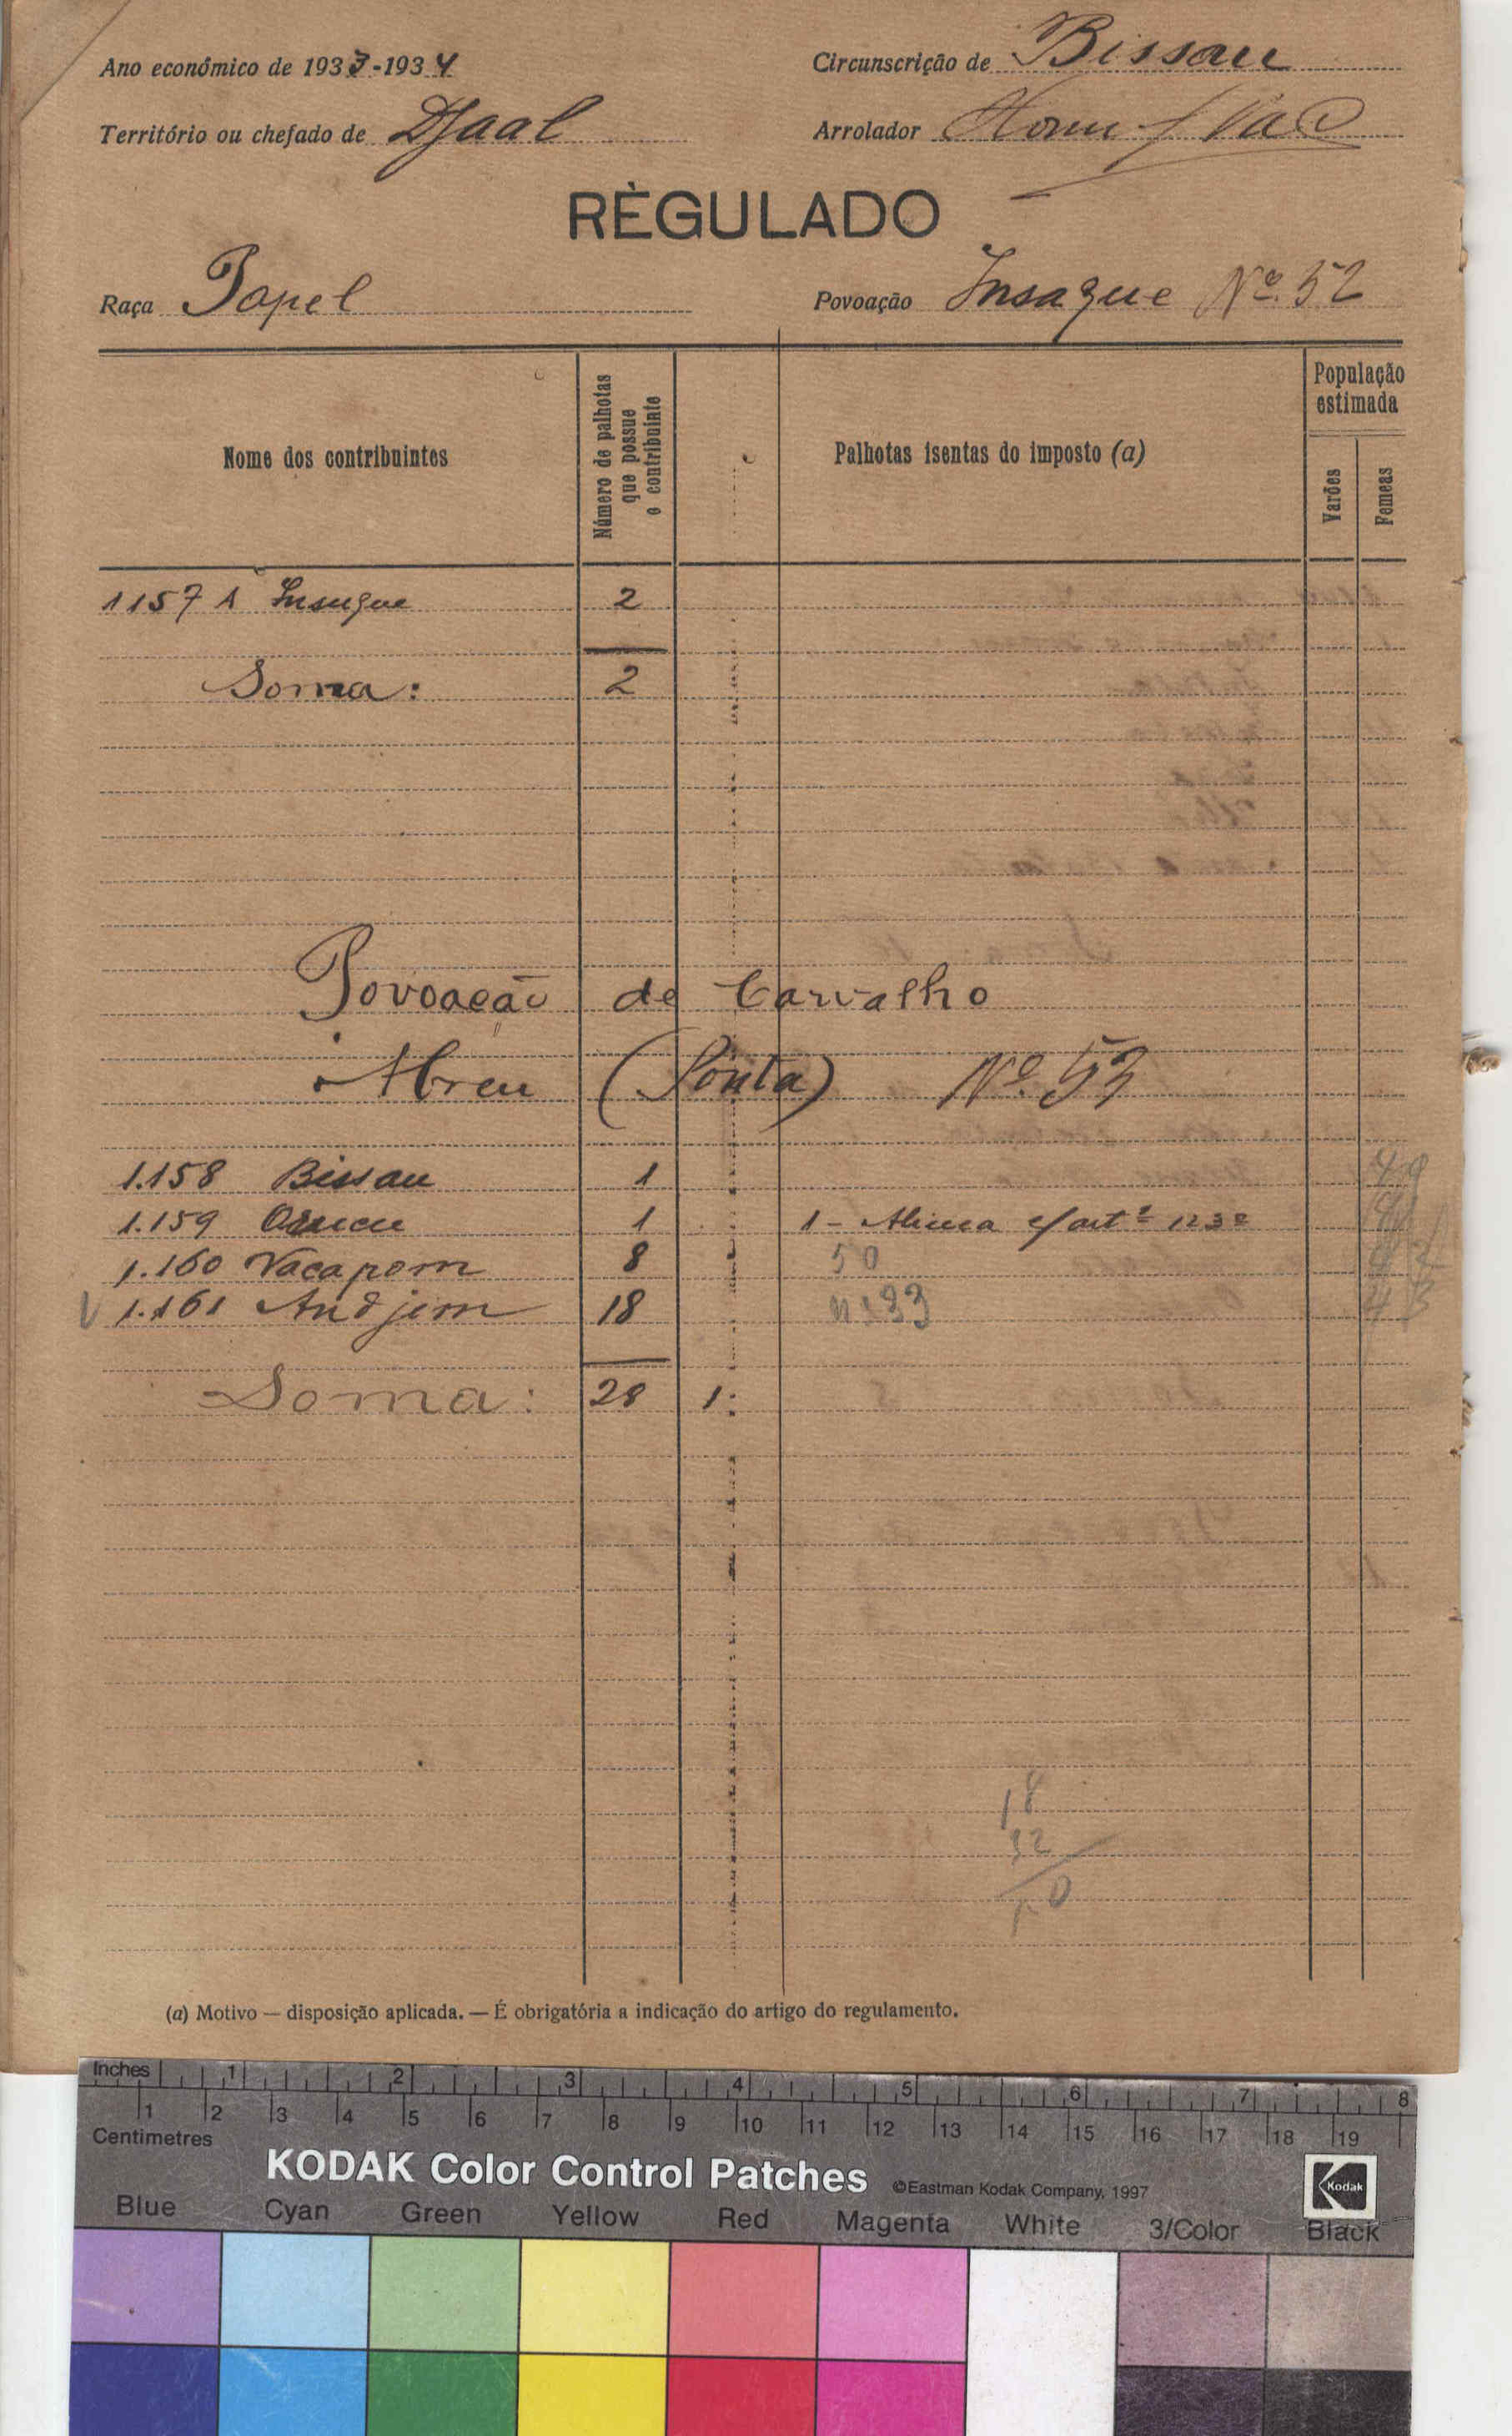 Ano económico de 1933-1934
Circunscrição de Bissau
Território ou chefado de Djaal
Arrolador
RÈGULADO
Raça Papel
Povoação Insaque Nº 52
Nome dos contribuintes
Número de palhotas que possue o contribuinte
Palhotas isentas do imposto (a)
População estimada
Varões
Femeas
1157 A Insugue 2
Soma: 2
Povoação de Carvalho
Abreu (Ponta) Nº 53
1.158 Bissau 1
1.159 1 1 - artº 123º
1.160 Vacapom 8 50
1.161 Andjim 18
Soma: 28 1
18
32
50
(a) Motivo — disposição aplicada. — É obrigatória a indicação do artigo do regulamento.
Inches 1 2 3 4 5 6 7 8
1 2 3 4 5 6 7 8 9 10 11 12 13 14 15 16 17 18 19
Centimetres
KODAK Color Control Patches ©Eastman Kodak Company, 1997 Kodak
Blue Cyan Green Yellow Red Magenta White 3/Color Black